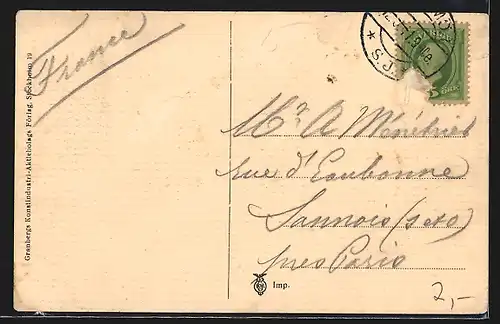 France
Granbergs Konstindustri-Aktiebolags Förlag, Stockholm 19
5
ÖRE
Mr A Ménétrier
rue d'Eaubonne
Sannois (S et O)
près Paris
Imp.
2,-